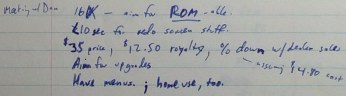 Meeting w/ Dan
16K — aim for ROM-able.
£10 sec for solo screen stuff.
$35 price, $12.50 royalty, % down w/ dealer sales
assuming $4.80 cost
Aim for upgrades
Have menus. ; home use, too.